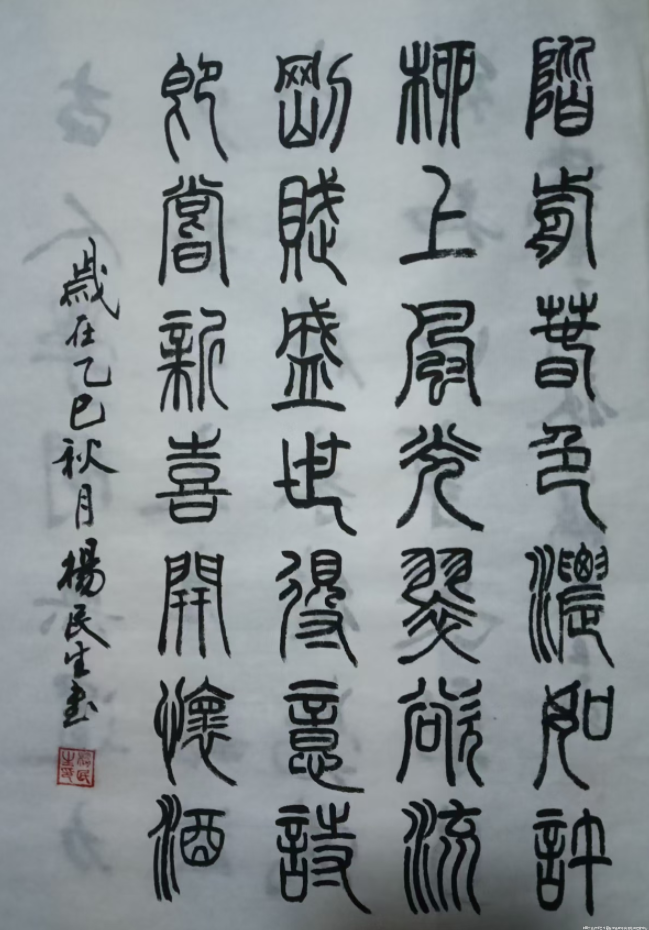 階前春色濃如許
柳上風光翠欲流
剛賦盛世得意詩
即嘗新喜開懷酒
歲在乙巳秋月楊民生書